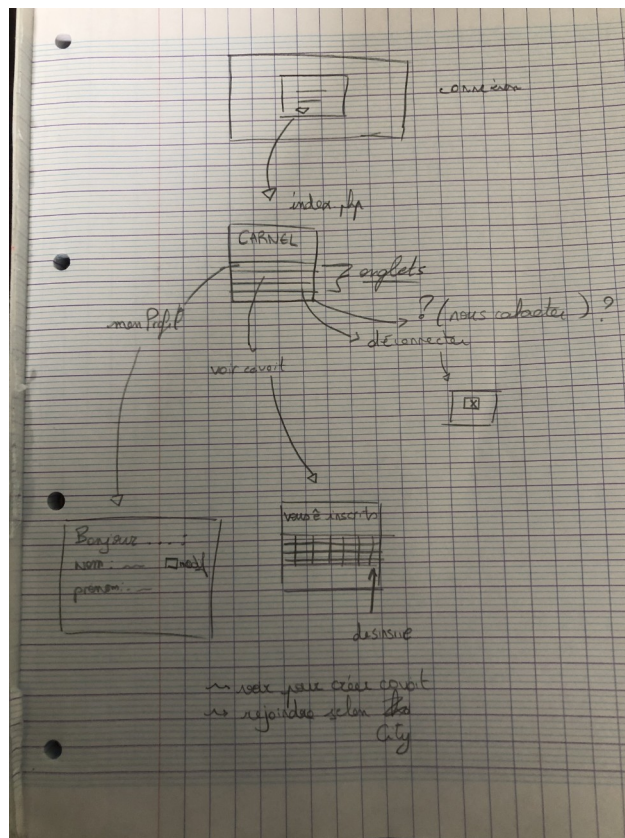 connexion
index.php
CARNEL
onglets
? (nous contacter) ?
mon Profil
déconnecter
voir covoit
X
vous ê inscrits
Bonjour ... :
nom: __ modif
prénom: __
désinscrire
voir pour créer covoit
rejoindre selon
City